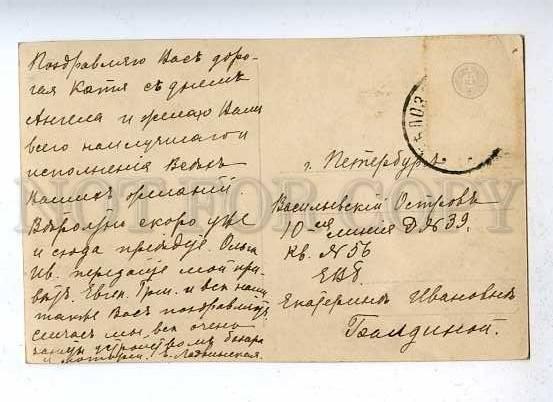 Поздравляю Васъ доро-
гая Катя съ днемъ
Ангела и желаю Вамъ
всего наилучшаго и
исполненія Всѣхъ
Вашихъ желаній.
Вѣроятно скоро уже
и сюда пріѣдуе. Ольга
Ив. передайте мой при-
вѣтъ. Евген. Григ. и всѣ наши
также Васъ поздравляютъ
сейчасъ мы всѣ очень
заняты устройствомъ базара
и лоттереи.
г. Петербургъ
Васильевскій Островъ
10-ая линія Д. № 39.
кв. № 56
ЕВБ
Екатеринѣ Ивановнѣ
NOT FOR COPY